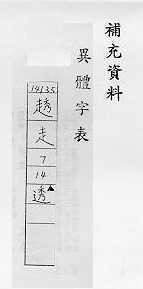 補充資料
異體字表
14135
趥
走
7
14
透